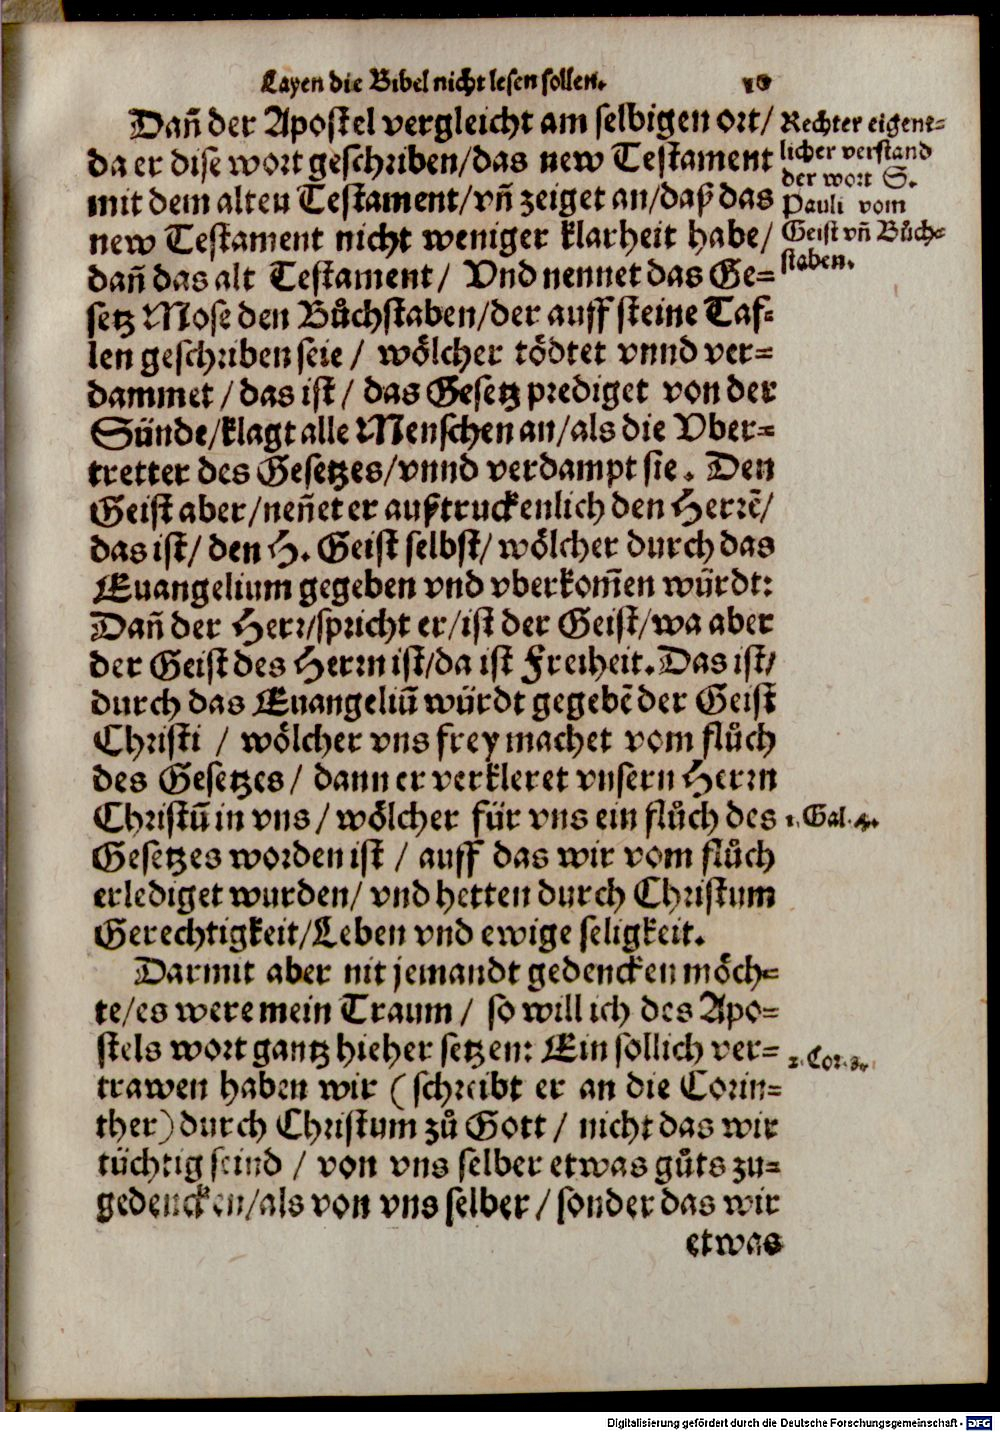 Layen die Bibel nicht lesen sollen. 10
Dañ der Apostel vergleicht am selbigen ort/
da er dise wort geschriben/das new Testament
mit dem alten Testament/vñ zeiget an/daß das
new Testament nicht weniger klarheit habe/
dañ das alt Testament/ Vnd nennet das Ge=
setz Mose den Bůchstaben/der auff steine Taf=
len geschriben seie / wölcher tödtet vnnd ver=
dammet / das ist / das Gesetz prediget von der
Sünde/klagt alle Menschen an/als die Vber=
tretter des Gesetzes/vnnd verdampt sie. Den
Geist aber/neñet er außtruckenlich den Herrẽ/
das ist/ den H. Geist selbst/ wölcher durch das
Euangelium gegeben vnd vberkom̃en würdt:
Dañ der Herr/spricht er/ist der Geist/wa aber
der Geist des Herrn ist/da ist Freiheit. Das ist/
durch das Euangeliũ würdt gegebẽ der Geist
Christi / wölcher vns frey machet vom flůch
des Gesetzes/ dann er verkleret vnsern Herrn
Christũ in vns / wölcher für vns ein flůch des
Gesetzes worden ist / auff das wir vom flůch
erlediget wurden/ vnd hetten durch Christum
Gerechtigkeit/Leben vnd ewige seligkeit.
Darmit aber nit jemandt gedencken möch=
te/es were mein Traum / so will ich des Apo=
stels wort gantz hieher setzen: Ein sollich ver=
trawen haben wir ( schreibt er an die Corin=
ther) durch Christum zů Gott / nicht das wir
tüchtig seind / von vns selber etwas gůts zu=
gedencken/als von vns selber / sonder das wir
etwas
Rechter eigent=
licher verstand
der wort S.
Pauli vom
Geist vñ Bůch=
staben.
1. Gal. 4.
2. Cor. 3.
Digitalisierung gefördert durch die Deutsche Forschungsgemeinschaft - DFG